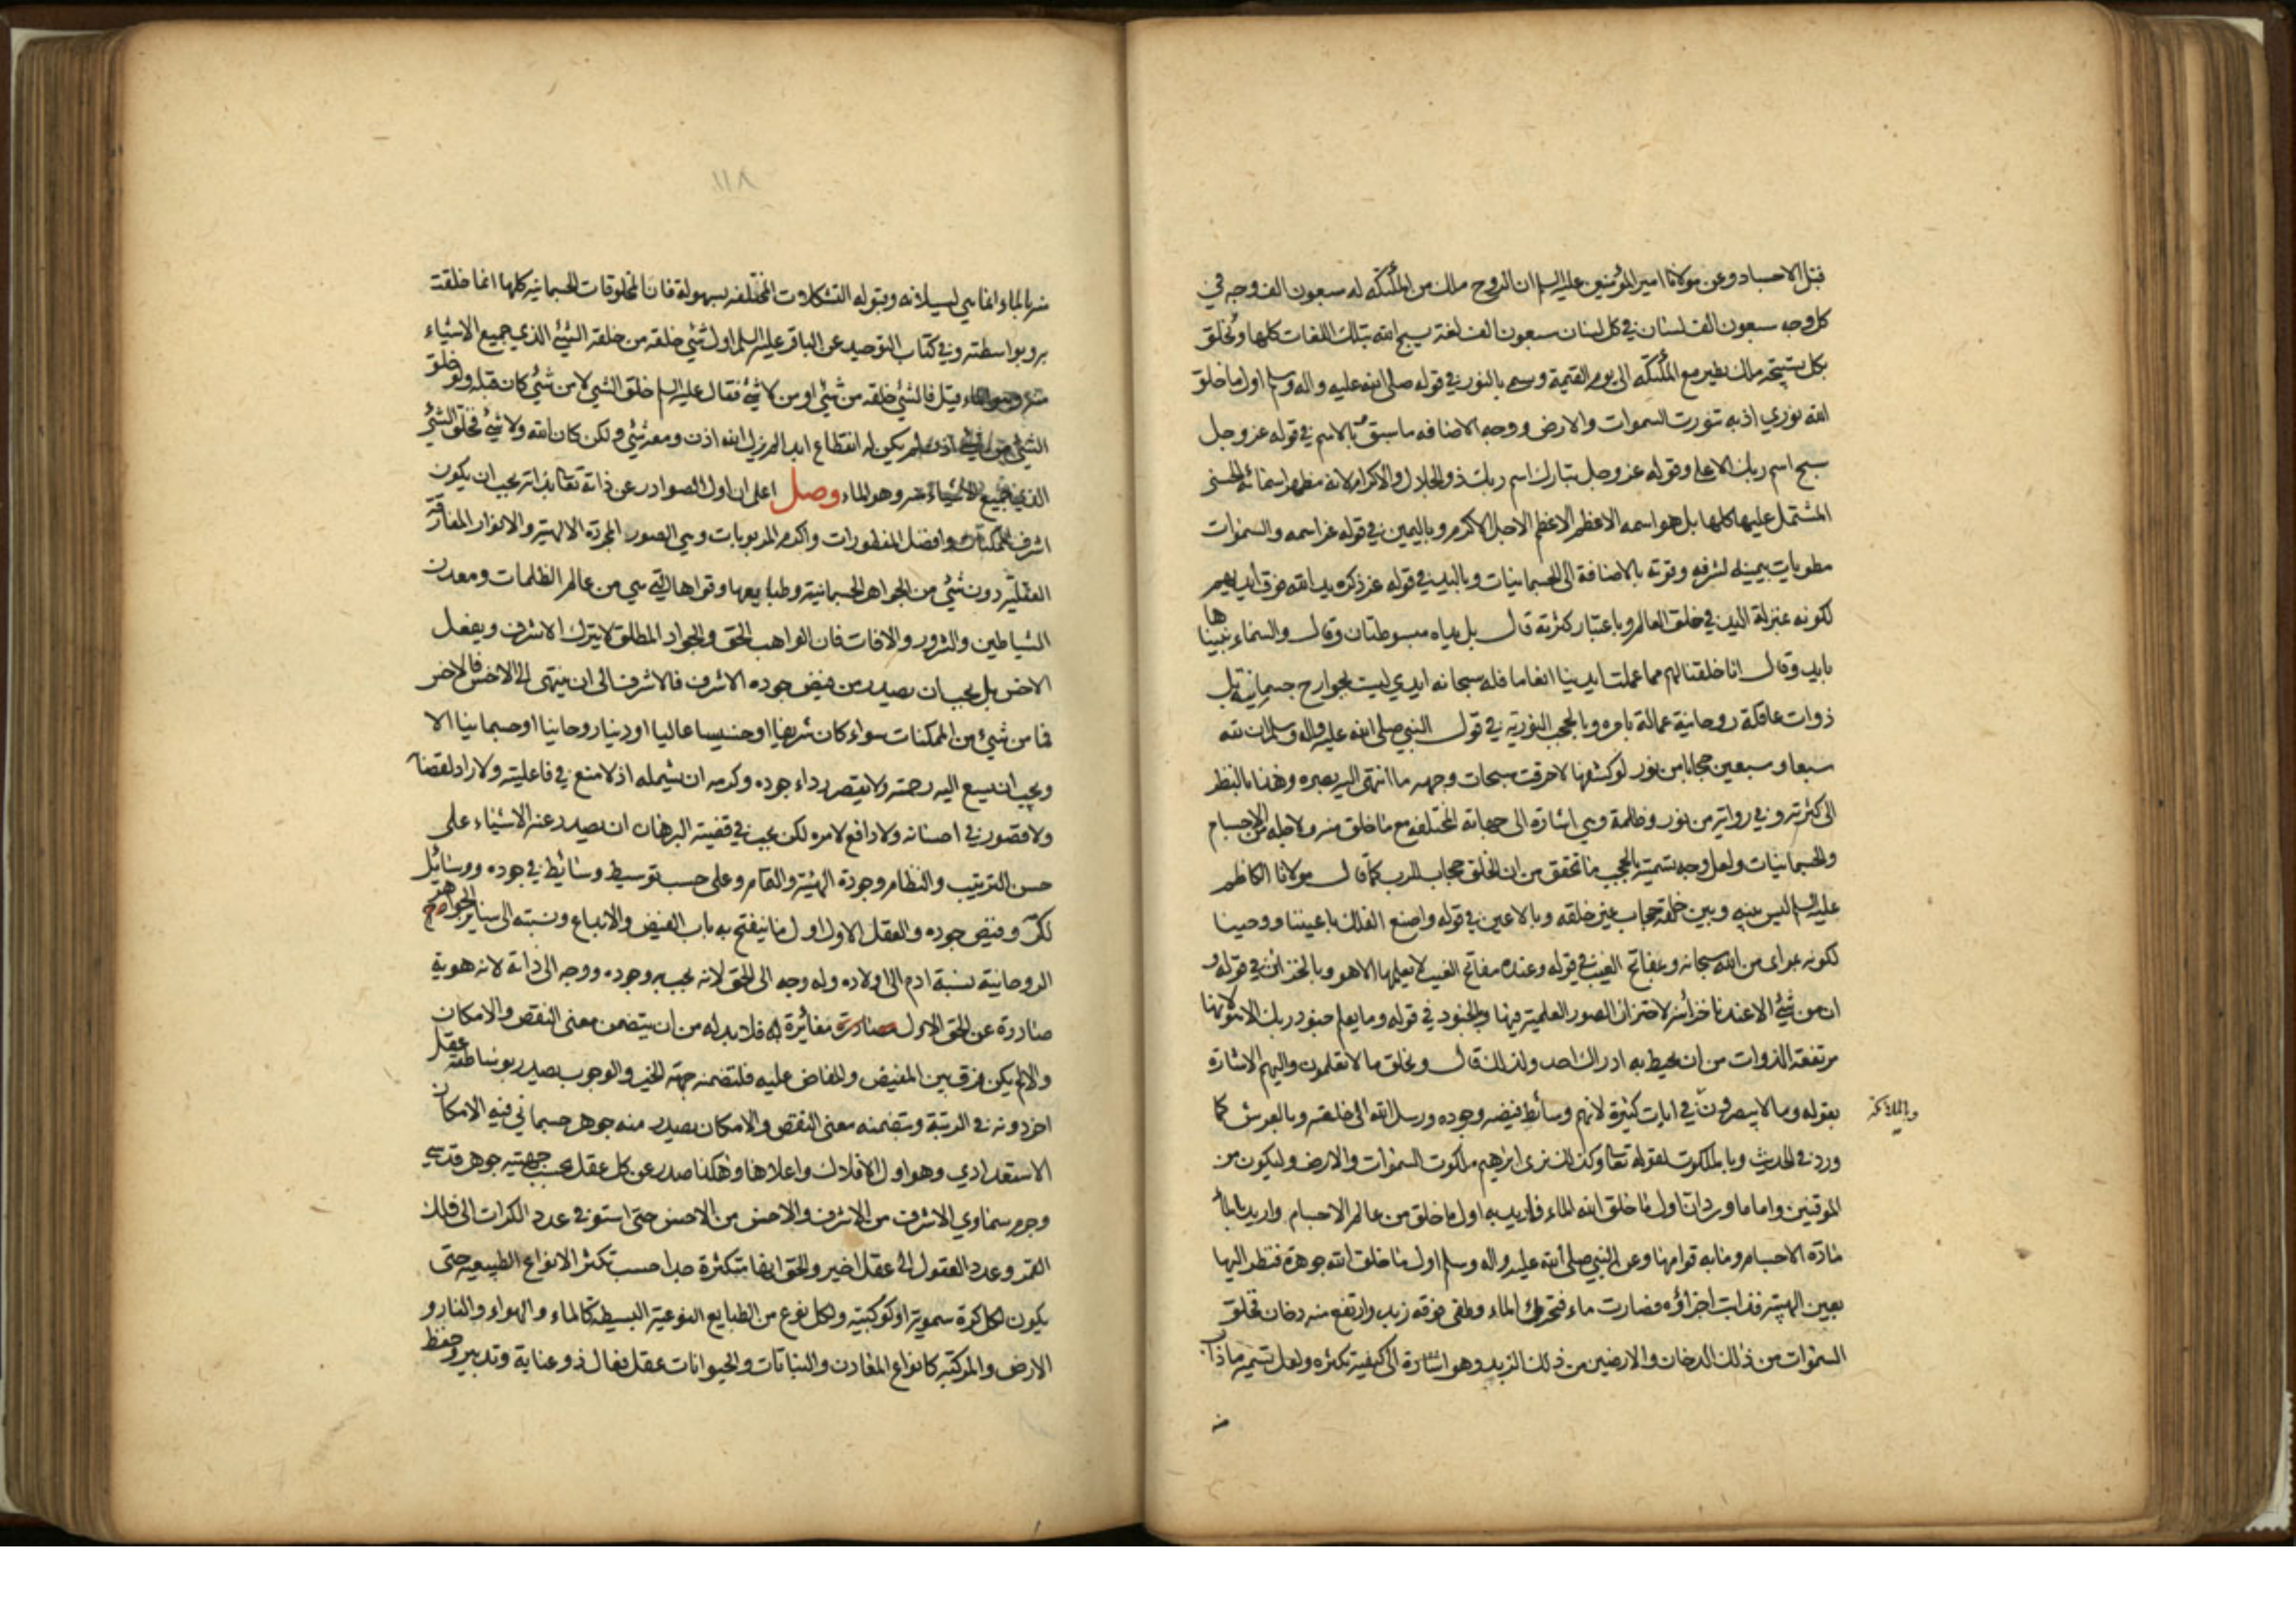 قبل الاجساد وعن مولانا امير المؤمنين عليه السلم ان الروح ملك من الملئكة له سبعون الف وجه في
كل وجه سبعون الف لسان في كل لسان سبعون الف لغة يسبح الله بتلك اللغات كلها ويخلق
بكل تسبيحة ملك يطير مع الملئكة الى يوم القيمة وسمي بالنور في قوله صلى الله عليه واله وسلم اول ما خلق
الله نوري اذ به تنورت السموات والارض ووجه الاضافه ما سبق وبالاسم في قوله عز وجل
سبح اسم ربك الاعلى وقوله عز وجل تبارك اسم ربك ذو الجلال والاكرام لانه مظهر اسمائه الحسنى
المشتمل عليها كلها بل هو اسمه الاعظم الاعظم الاجل الاكرم وباليمين في قوله عز اسمه والسموات
مطويات بيمينه لشرفه وقوته بالاضافة الى الجسمانيات وباليد في قوله عز ذكره يد الله فوق ايديهم
لكونه بمنزلة اليد في خلق العالم وباعتبار كثرته قال بل يداه مبسوطتان وقال والسماء بنيناها
بايد وقال انا خلقنا لهم مما عملت ايدينا انعاما فله سبحانه ايدي ليست بجوارح جسمانية بل
ذوات عاقلة روحانية عمالة بامره وبالحجب النورية في قول النبي صلى الله عليه واله وسلم ان لله
سبعا وسبعين حجابا من نور لو كشفها لاحرقت سبحات وجهه ما انتهى اليه بصره وهذا بالنظر
الى كثرته وفي رواية من نور وظلمة وهي اشارة الى جهاته المختلفة مع ما خلق منه ولاجله من الاجسام
والجسمانيات ولعل وجه تسميته بالحجب ما تحقق من ان الخلق حجاب للرب كما قال مولانا الكاظم
عليه السلم ليس بينه وبين خلقه حجاب غير خلقه وبالاعين في قوله واصنع الفلك باعيننا ووحينا
لكونه بمراى من الله سبحانه وبمفاتح الغيب في قوله وعنده مفاتح الغيب لا يعلمها الا هو وبالخزائن في قوله و
ان من شيئ الا عندنا خزائنه لاختزان الصور العلمية فيها وبالجنود في قوله وما يعلم جنود ربك الا هو لانها
مرتفعة الذوات من ان يحيط به ادراك احد ولذلك قال ويخلق ما لا تعلمون واليهم الاشارة
بقوله وما لا تبصرون وبالملائكة في ايات كثيرة لانهم وسائط فيضه وجوده ورسل الله الى خلقه وبالعرش كما
ورد في الحديث وبالملكوت لقوله تعالى وكذلك نري ابرهيم ملكوت السموات والارض وليكون من
الموقنين واما ما ورد ان اول ما خلق الله الماء فاريد به اول ما خلق من عالم الاجسام واريد بالماء
مادة الاجسام وما به قوامها وعن النبي صلى الله عليه واله وسلم اول ما خلق الله جوهرة فنظر اليها
بعين الهيبة فذابت اجزاؤه فصارت ماء فتحرك الماء وطفى فوقه زبد وارتفع منه دخان فخلق
السموات من ذلك الدخان والارضين من ذلك الزبد وهو اشارة الى كيفية تكثره ولعل تسمية ما ذاب
منه
١١٨
منه بالماء انما هي لسيلانه وقبوله التشكلات المختلفة بسهولة فان المخلوقات الجسمانية كلها انما خلقت
به وبواسطته وفي كتاب التوحيد عن الباقر عليه السلم اول شيئ خلقه من خلقه الشيئ الذي جميع الاشياء
منه وهو الماء قيل فالشيئ خلقه من شيئ او من لا شيئ فقال عليه السلم خلق الشيئ لا من شيئ كان قبله ولو خلق
الشيئ من شيئ اذا لم يكن له انقطاع ابدا لم يزل الله اذن ومعه شيئ ولكن كان الله ولا شيئ فخلق الشيئ
الذي جميع الاشياء منه وهو الماء وصل اعلم ان اول الصوادر عن ذاته تعالى بذاته يجب ان يكون
اشرف الممكنات وافضل المفطورات واكرم المربوبات وهي الصور المجردة الالهية والانوار المفارقة
العقلية دون شيئ من الجواهر الجسمانية وطبايعها وقواها التي هي من عالم الظلمات ومعدن
الشياطين والشرور والافات فان الواهب الحق والجواد المطلق لا يترك الاشرف ويفعل
الاخس بل يجب ان يصدر من فيض جوده الاشرف فالاشرف الى ان ينتهى الى الاخس فالاخس
فما من شيئ من الممكنات سواء كان شريفا او خسيسا عاليا او دنيا روحانيا او جسمانيا الا
ويجب ان يسع اليه رحمته ولا يقصر رداء جوده وكرمه ان يشمله اذ لا منع في فاعليته ولا راد لقضائه
ولا قصور في احسانه ولا دافع لامره لكن يجب في قضية البرهان ان يصدر عنه الاشياء على
حسن الترتيب والنظام وجودة الهيئة والتمام وعلى حسب توسيط وسائط في جوده ووسائل
لكرمه وفيض جوده والعقل الاول اول ما ينفتح به باب الفيض والابداع ونسبته الى سائر الجواهر
الروحانية نسبة ادم الى اولاده وله وجه الى الحق لانه يجب به وجوده ووجه الى ذاته لانه هوية
صادرة عن الحق الاول مغائرة له فلا بد له من ان يتضمن معنى النقص والامكان
والا لم يكن فرق بين المفيض والمفاض عليه فلتضمنه جهة الخير والوجوب يصدر بوساطته عقل
اخر دونه في الرتبة وبتضمنه معنى النقص والامكان يصدر منه جوهر جسماني فيه الامكان
الاستعدادي وهو اول الافلاك واعلاها وهكذا صدر عن كل عقل بحسب جهتيه جوهر قدسي
وجرم سماوي الاشرف من الاشرف والاخس من الاخس حتى استوفى عدد الكرات الى فلك
القمر وعدد العقول الى عقل اخير والحق انها متكثرة جدا حسب تكثر الانواع الطبيعية حتى
يكون لكل كرة سموية او كوكبية ولكل نوع من الطبايع النوعية البسيطة كالماء والهواء والنار و
الارض والمركبة كانواع المعادن والنباتات والحيوانات عقل فعال ذو عناية وتدبير وحفظ